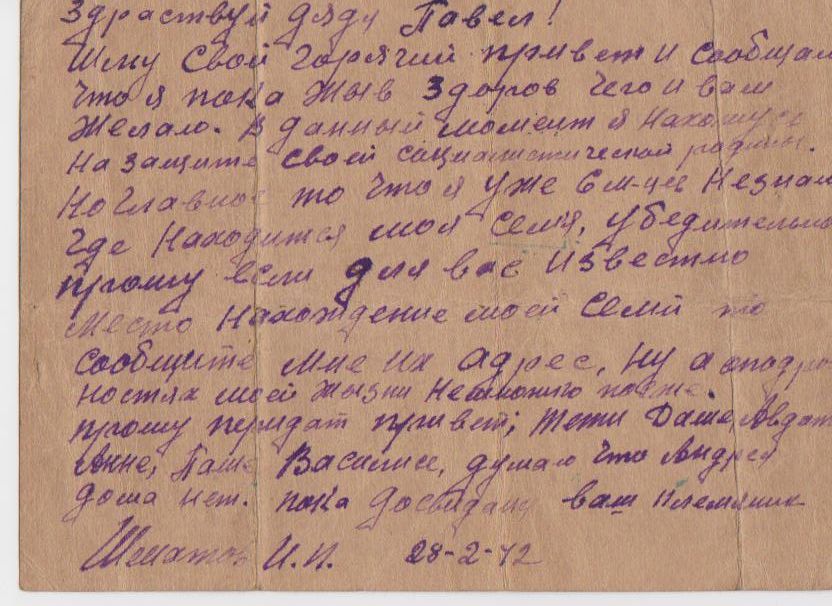 Здраствуй дяду Павел!
Шлу свой горячий привет и сообщаю
что я пока жыв здоров чего и вам
желаю. В данный момент я нахожусь
на защите своей социалистической родины.
Но главное то что я уже 6 м-цев незнаю
где находится моя семя, убедительно
прошу если для вас известно
место нахождение моей семи то
сообщите мне их адрес, ну а оподроб
ностях моей жызни немножко позже.
прошу перидат привет; тети Даше, Авдот
Анне, Паше Василисе, думаю что Андрея
дома нет. пока досвидану ваш племяник
И.П. 28-2-42